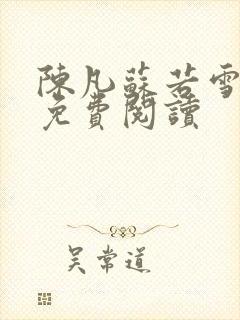 陳凡蘇若雪
免費閱讀
吳常道